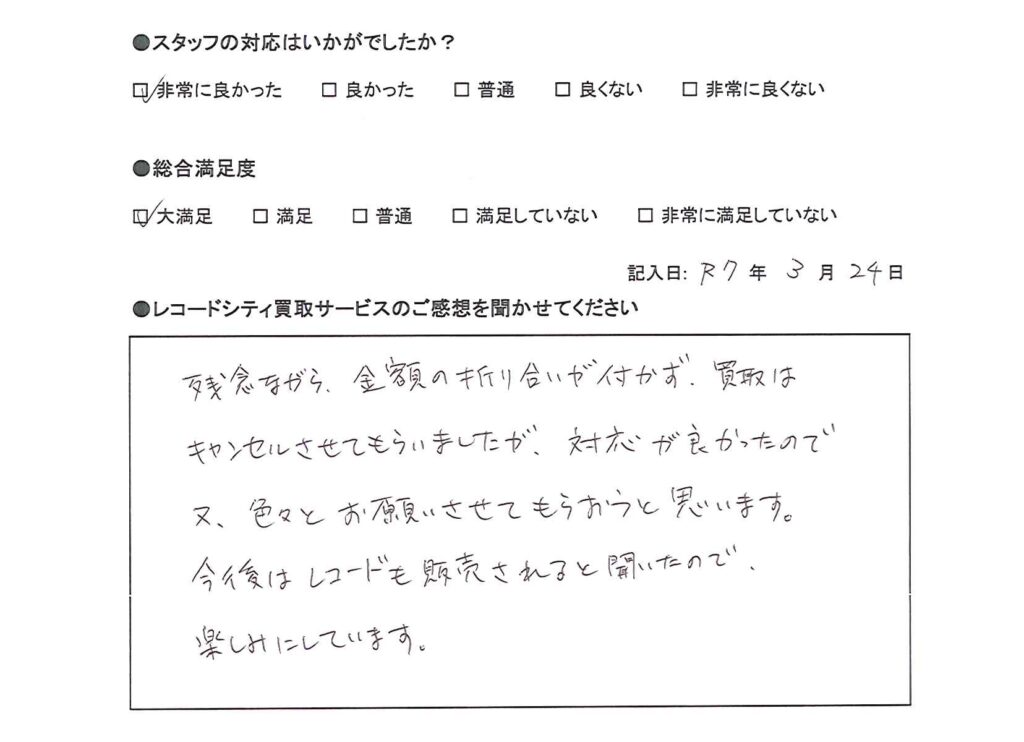 ●スタッフの対応はいかがでしたか？
☑非常に良かった　□ 良かった　□ 普通　□ 良くない　□ 非常に良くない
●総合満足度
☑大満足　□ 満足　□ 普通　□ 満足していない　□ 非常に満足していない
記入日: R7 年 3 月 24 日
●レコードシティ買取サービスのご感想を聞かせてください
残念ながら、金額の折り合いが付かず、買取は
キャンセルさせてもらいましたが、対応が良かったので
又、色々とお願いさせてもらおうと思います。
今後はレコードも販売されると聞いたので、
楽しみにしています。